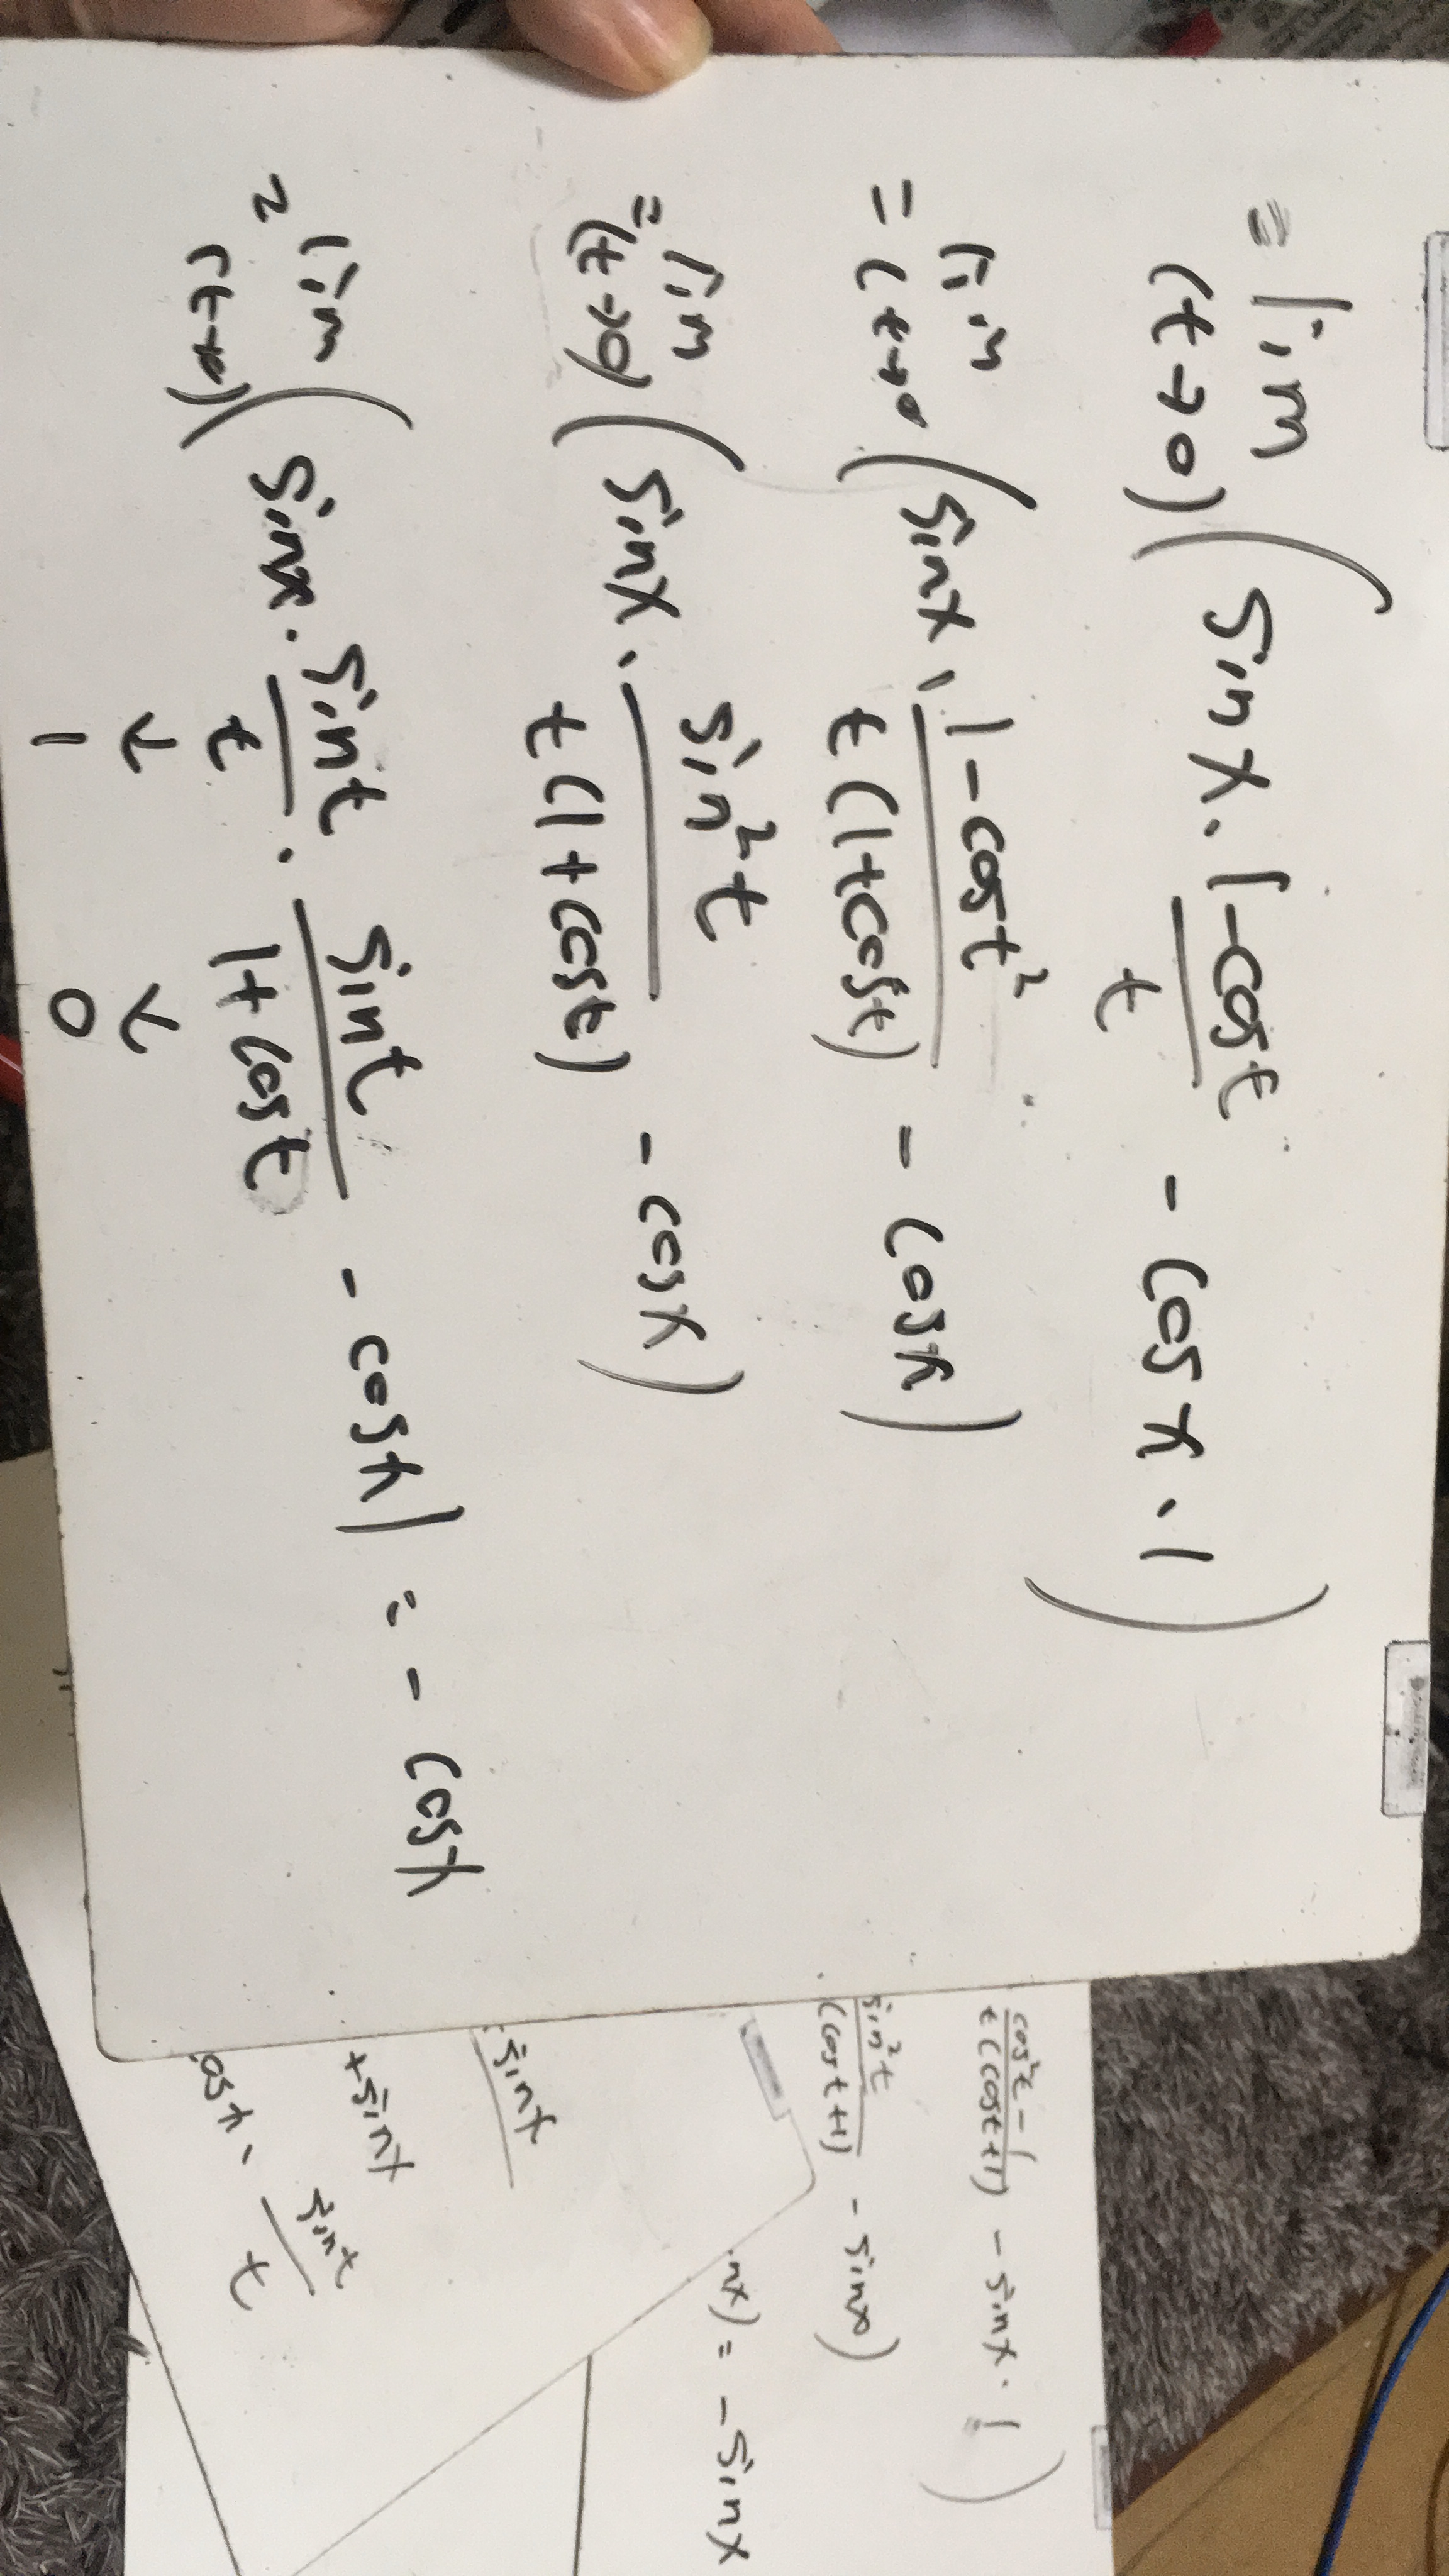 = lim (t→0) ( sin x · 1-cos t / t - cos x · 1 )
= lim (t→0 ( sin x · 1-cos t² / t(1+cos t) - cos x )
= lim (t→0) ( sin x · sin² t / t(1+cos t) - cos x )
= lim (t→0) ( sin x · sin t / t · sin t / 1+cos t - cos x ) = - cos x
↓ ↓
1 0
cos² t - 1 / t(cos t + 1) - sin x · 1 )
sin² t / (cos t + 1) - sin x )
nx) = - sin x
sin x
+ sin x
os x · sin t / t